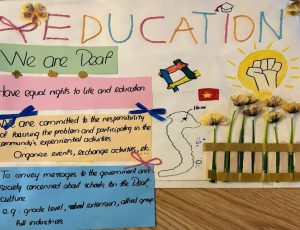 EDUCATION
We are Deaf
Have equal rights to Life and education
We are committed to the responsibility
of focusing the problem and participating in the
community's experiential activities
Organize events, exchange activities, etc.
To convey messages to the government and
society concerned about schools for the Deaf,
culture
e.g: grade level, extension, allied group
full industries